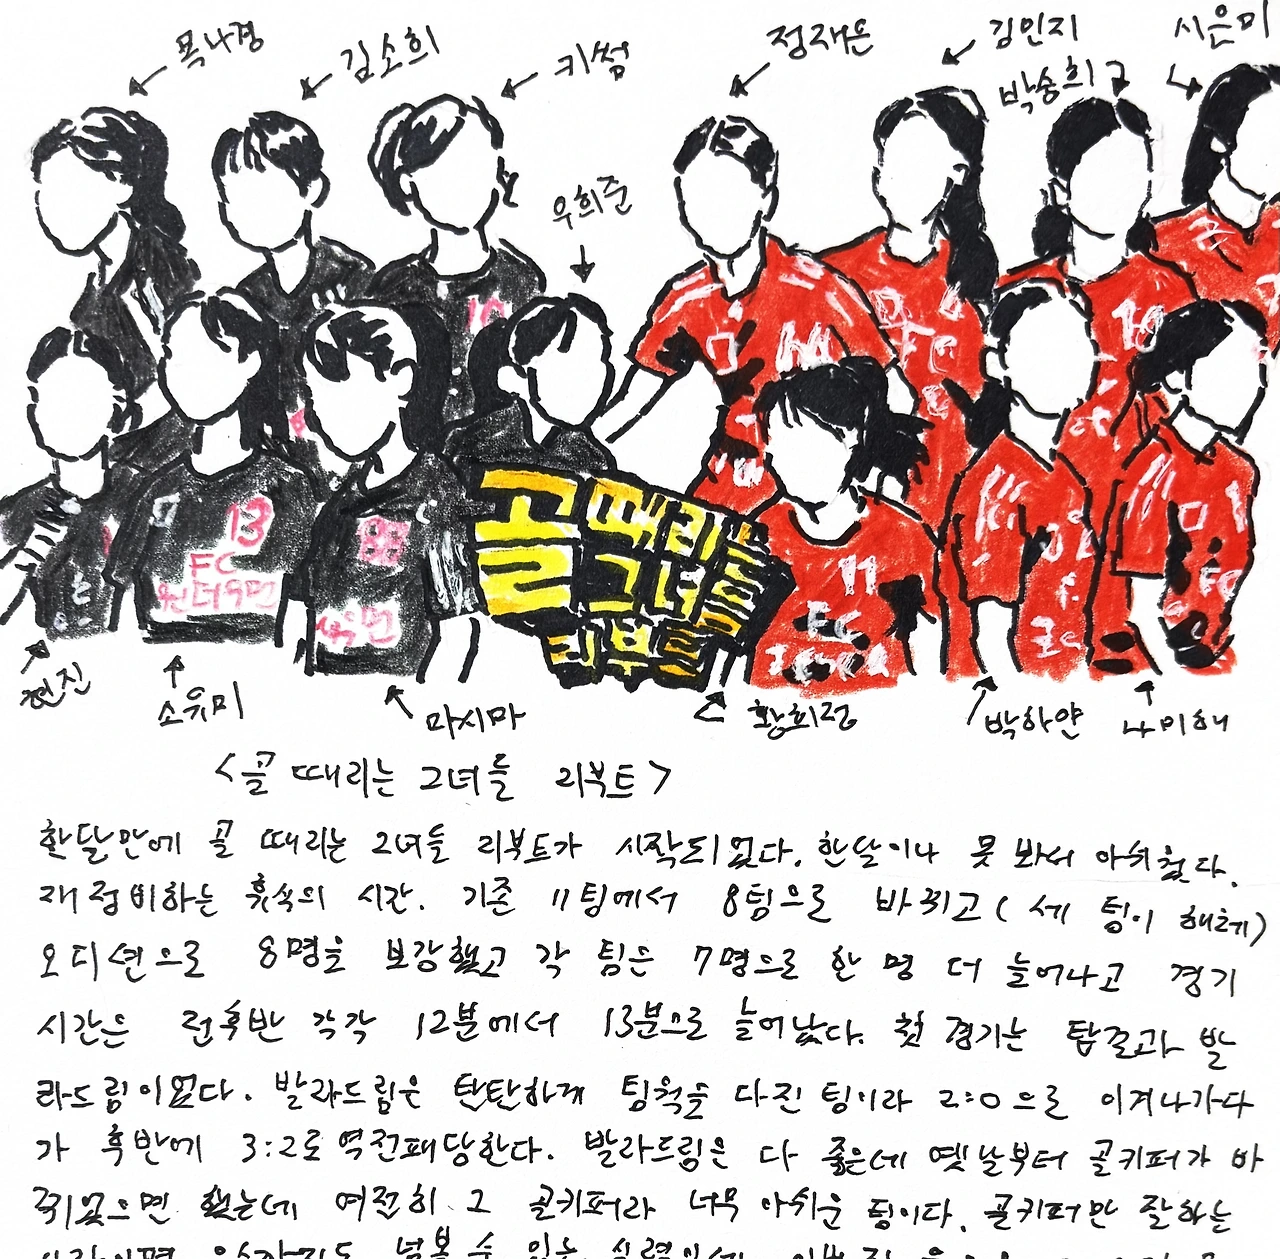 목나경
김소희
키썸
우희준
정재은
김민지
박승희
시은미
10
13
FC
원더우먼
88
우먼
골때리는
그녀들
리부트
11
FC
FC
현진
소유미
마시마
황희정
박하얀
나미해
<골 때리는 그녀들 리부트>
한달만에 골 때리는 그녀들 리부트가 시작되었다. 한달이나 못 봐서 아쉬웠다.
재정비하는 휴식의 시간. 기존 11팀에서 8팀으로 바뀌고(세 팀이 해체)
오디션으로 8명을 보강했고 각 팀은 7명으로 한 명 더 늘어나고 경기
시간은 전후반 각각 12분에서 13분으로 늘어났다. 첫 경기는 탑걸과 발
라드림이었다. 발라드림은 탄탄하게 팀웍을 다진 팀이라 2:0으로 이겨나가다
가 후반에 3:2로 역전패당한다. 발라드림은 다 좋은데 옛날부터 골키퍼가 바
뀌었으면 했는데 여전히 그 골키퍼라 너무 아쉬운 팀이다. 골키퍼만 잘하는